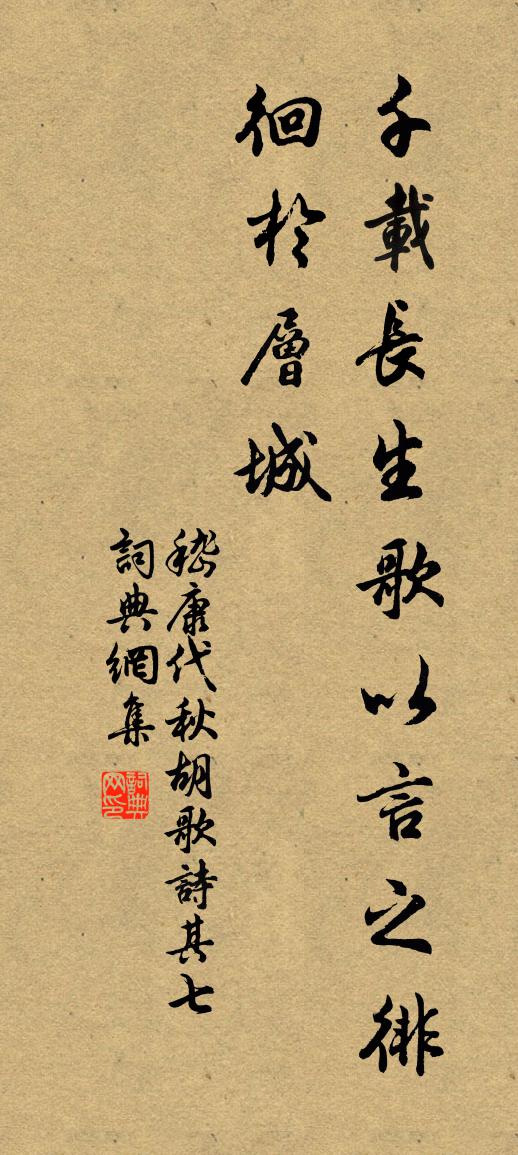 千載長生歌以言之徘
徊於層城
嵇康代秋胡歌詩其七
詞典網集
詞典网印